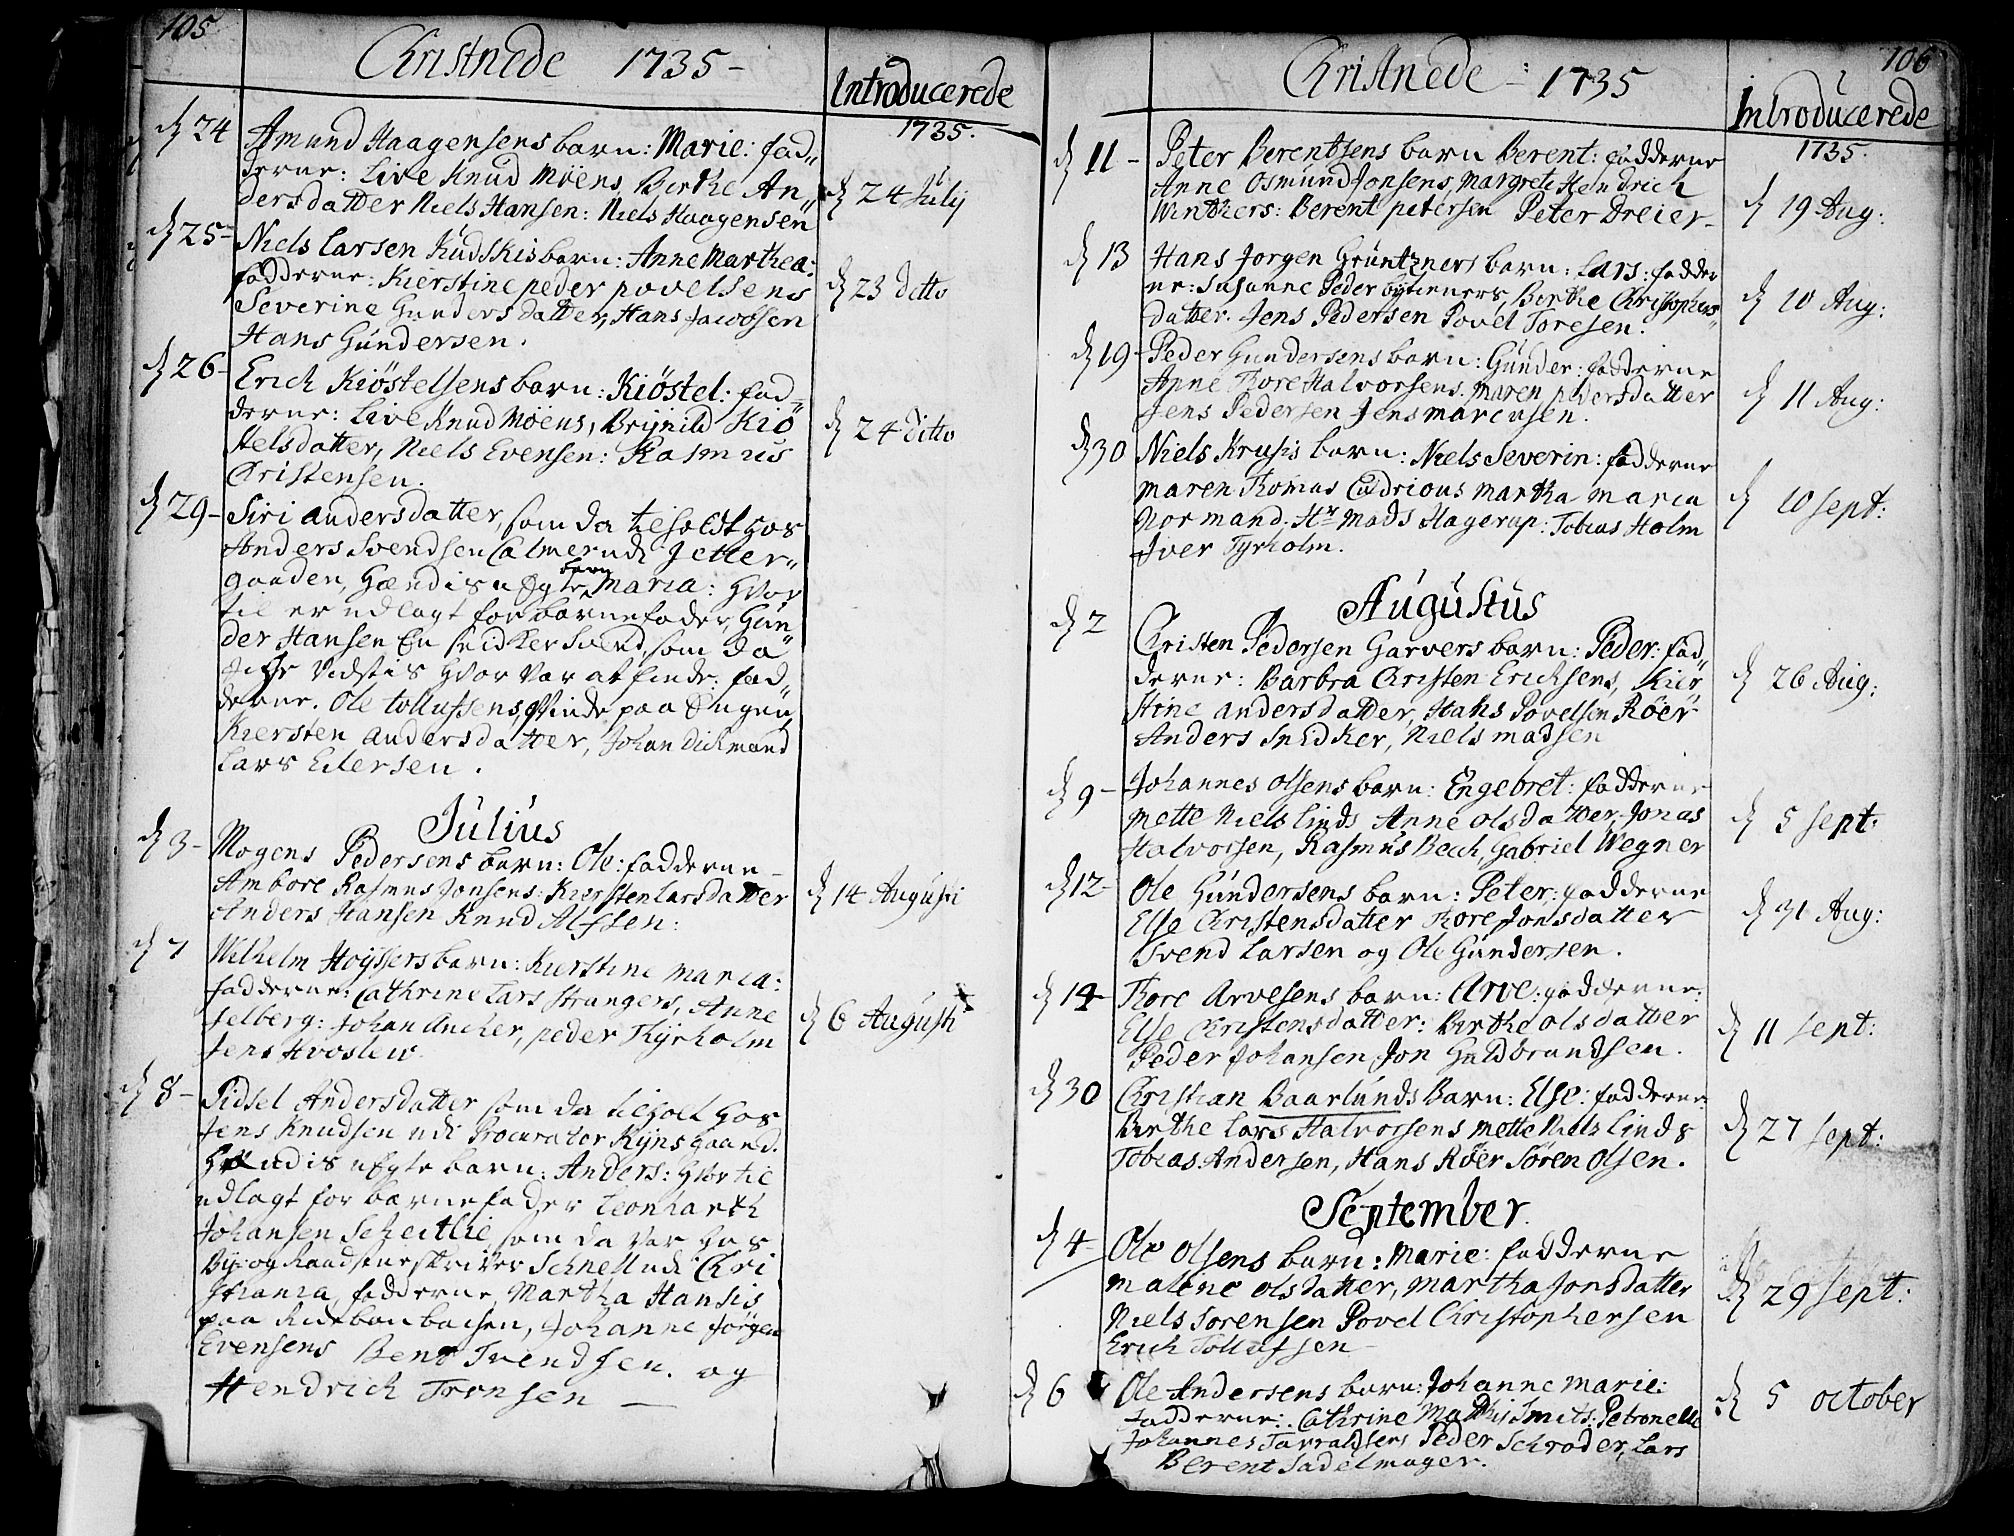 105
Christnede 1735 -
Introducerede
1735.
d 24 Amund Haagensens barn: Marie: fad„
derne: Live Knud Möens, Berthe An„
dersdatter Niels Hansen: Niels Haagensen
d 24 Julij
d 25- Niels Larsen Kudskis barn: Anne Marthea:
fadderne: Kierstine peder povelsens
Severine Gundersdatter, Hans Jacobsen
Hans Gundersen.
d 23 ditto
d 26- Erich Kiöstelsens barn: Kiöstel: fad=
derne: Live Knud Möens, Brynild Kiö
stelsdatter, Niels Evensen: Rasmus
Christensen.
d 24 ditto
d 29- Siri andersdatter, som da tilholdt hos
Anders Svendsen udi Jetter„
gaarden, Hændis uægte barn Maria: Hvor
til er udlagt for barnefader, Gun
der Hansen En Snidker Svend, som da
icke vidstis hvor var at finde. fad„
derne. Ole tollufsens qvinde paa Engen
Kiersten andersdatter, Johan Dickmand
Lars Eilersen.
Julius
d 3- Mogens Pedersens barn: Ole: fadderne -
Ambore Rasmus Jonsens: Kiersten Larsdatter
Anders Hansen Knud Alfsen:
d 14 Augusti
d 7 Wilhelm Hoyssers barn: Kierstine maria:
fadderne: Cathrine Lars Strangers, Anne
Selberg: Johan Ancher, peder Thyrholm
Jens Hvoslew.
d 6 Augusti
d 8- Sidsel Andersdatter som da tilholt hos
Jens Knudsen udi Procurator Ryns gaard.
Hændis uægte barn: Anders: Hvor til
udlagt for barnefader Leonharth
Johansen Scheitlie, som da var hos
By- og Raadstueskriver Schnell udi Chri
stiania, fadderne, Martha Hansis
paa Ridebanbachen, Johanne Jörgen
Evensens Bent Svendsen. og
Hendrich Tronsen —
106
Christnede - 1735
Introducerede
1735.
d 11 - Peter Berentsens barn Berent: fadderne
Anne Osmund Jonsens, Margrete Hendrich
Winthers: Berent petersen Peter Dreier -
d 19 Aug:
d 13 Hans Jorgen Gruntzners barn: Lars: fadder
ne: Susanne Peder bytieners, Berthe Christophers„
datter. Jens Pedersen Povel Toresen.
d 10 Aug:
d 19- Peder Gundersens barn: Gunder: fadderne
Anne Thore Halvorsens. maren pedersdatter
Jens Pedersen Jens marcusen.
d 11 Aug:
d 30 Niels Krusis barn: Niels Severin: fadderne
maren Thomas Martha maria
Normand. Hr Mads Hagerup: Tobias Holm
Iver Tyrholm.
d 10 sept:
Augustus
d 2 Christen Pedersen Garvers barn: Peder: fad„
derne: Barbra Christen Erichsens, Kier
stine andersdatter, Hans Povelsen Röer
Anders Snidker, Niels madsen
d 26 Aug:
d 9- Johannes olsens barn: Engebret: fadderne
mette Niels Linds Anne olsdatter, Jonas
Halvorsen, Rasmus Bech, Gabriel Wegner
d 5 sept:
d 12- Ole Gundersens barn: Peter: fadderne
Else Christensdatter Thore Jonsdatter
Svend Larsen og Ole Gundersen.
d 31 Aug:
d 14- Thore Arvesens barn: Arve: fadderne:
Else Christensdatter: Birthe olsdatter
Peder Johansen, Jon Guldbrandsen.
d 11 sept:
d 30 Christian Baarlunds Barn: Else: fadderne
Birthe Lars Halvorsens mette Niels Linds
Tobias Andersen, Hans Röer Sören Olsen.
d 27 sept:
September.
d 4- Ole Olsens barn: Marie: fadderne
malene olsdatter, martha Jonsdatter
Niels Sorensen Povel Christophersen
Erich Tollufsen -
d 29 sept:
d 6 Ole Andersens barn: Johanne Marie:
fadderne: Cathrine Mathis Smits: Petronelle
Johannes Tarraldsens Peder Schroder, Lars
Berent Sadelmager.
d 5 october